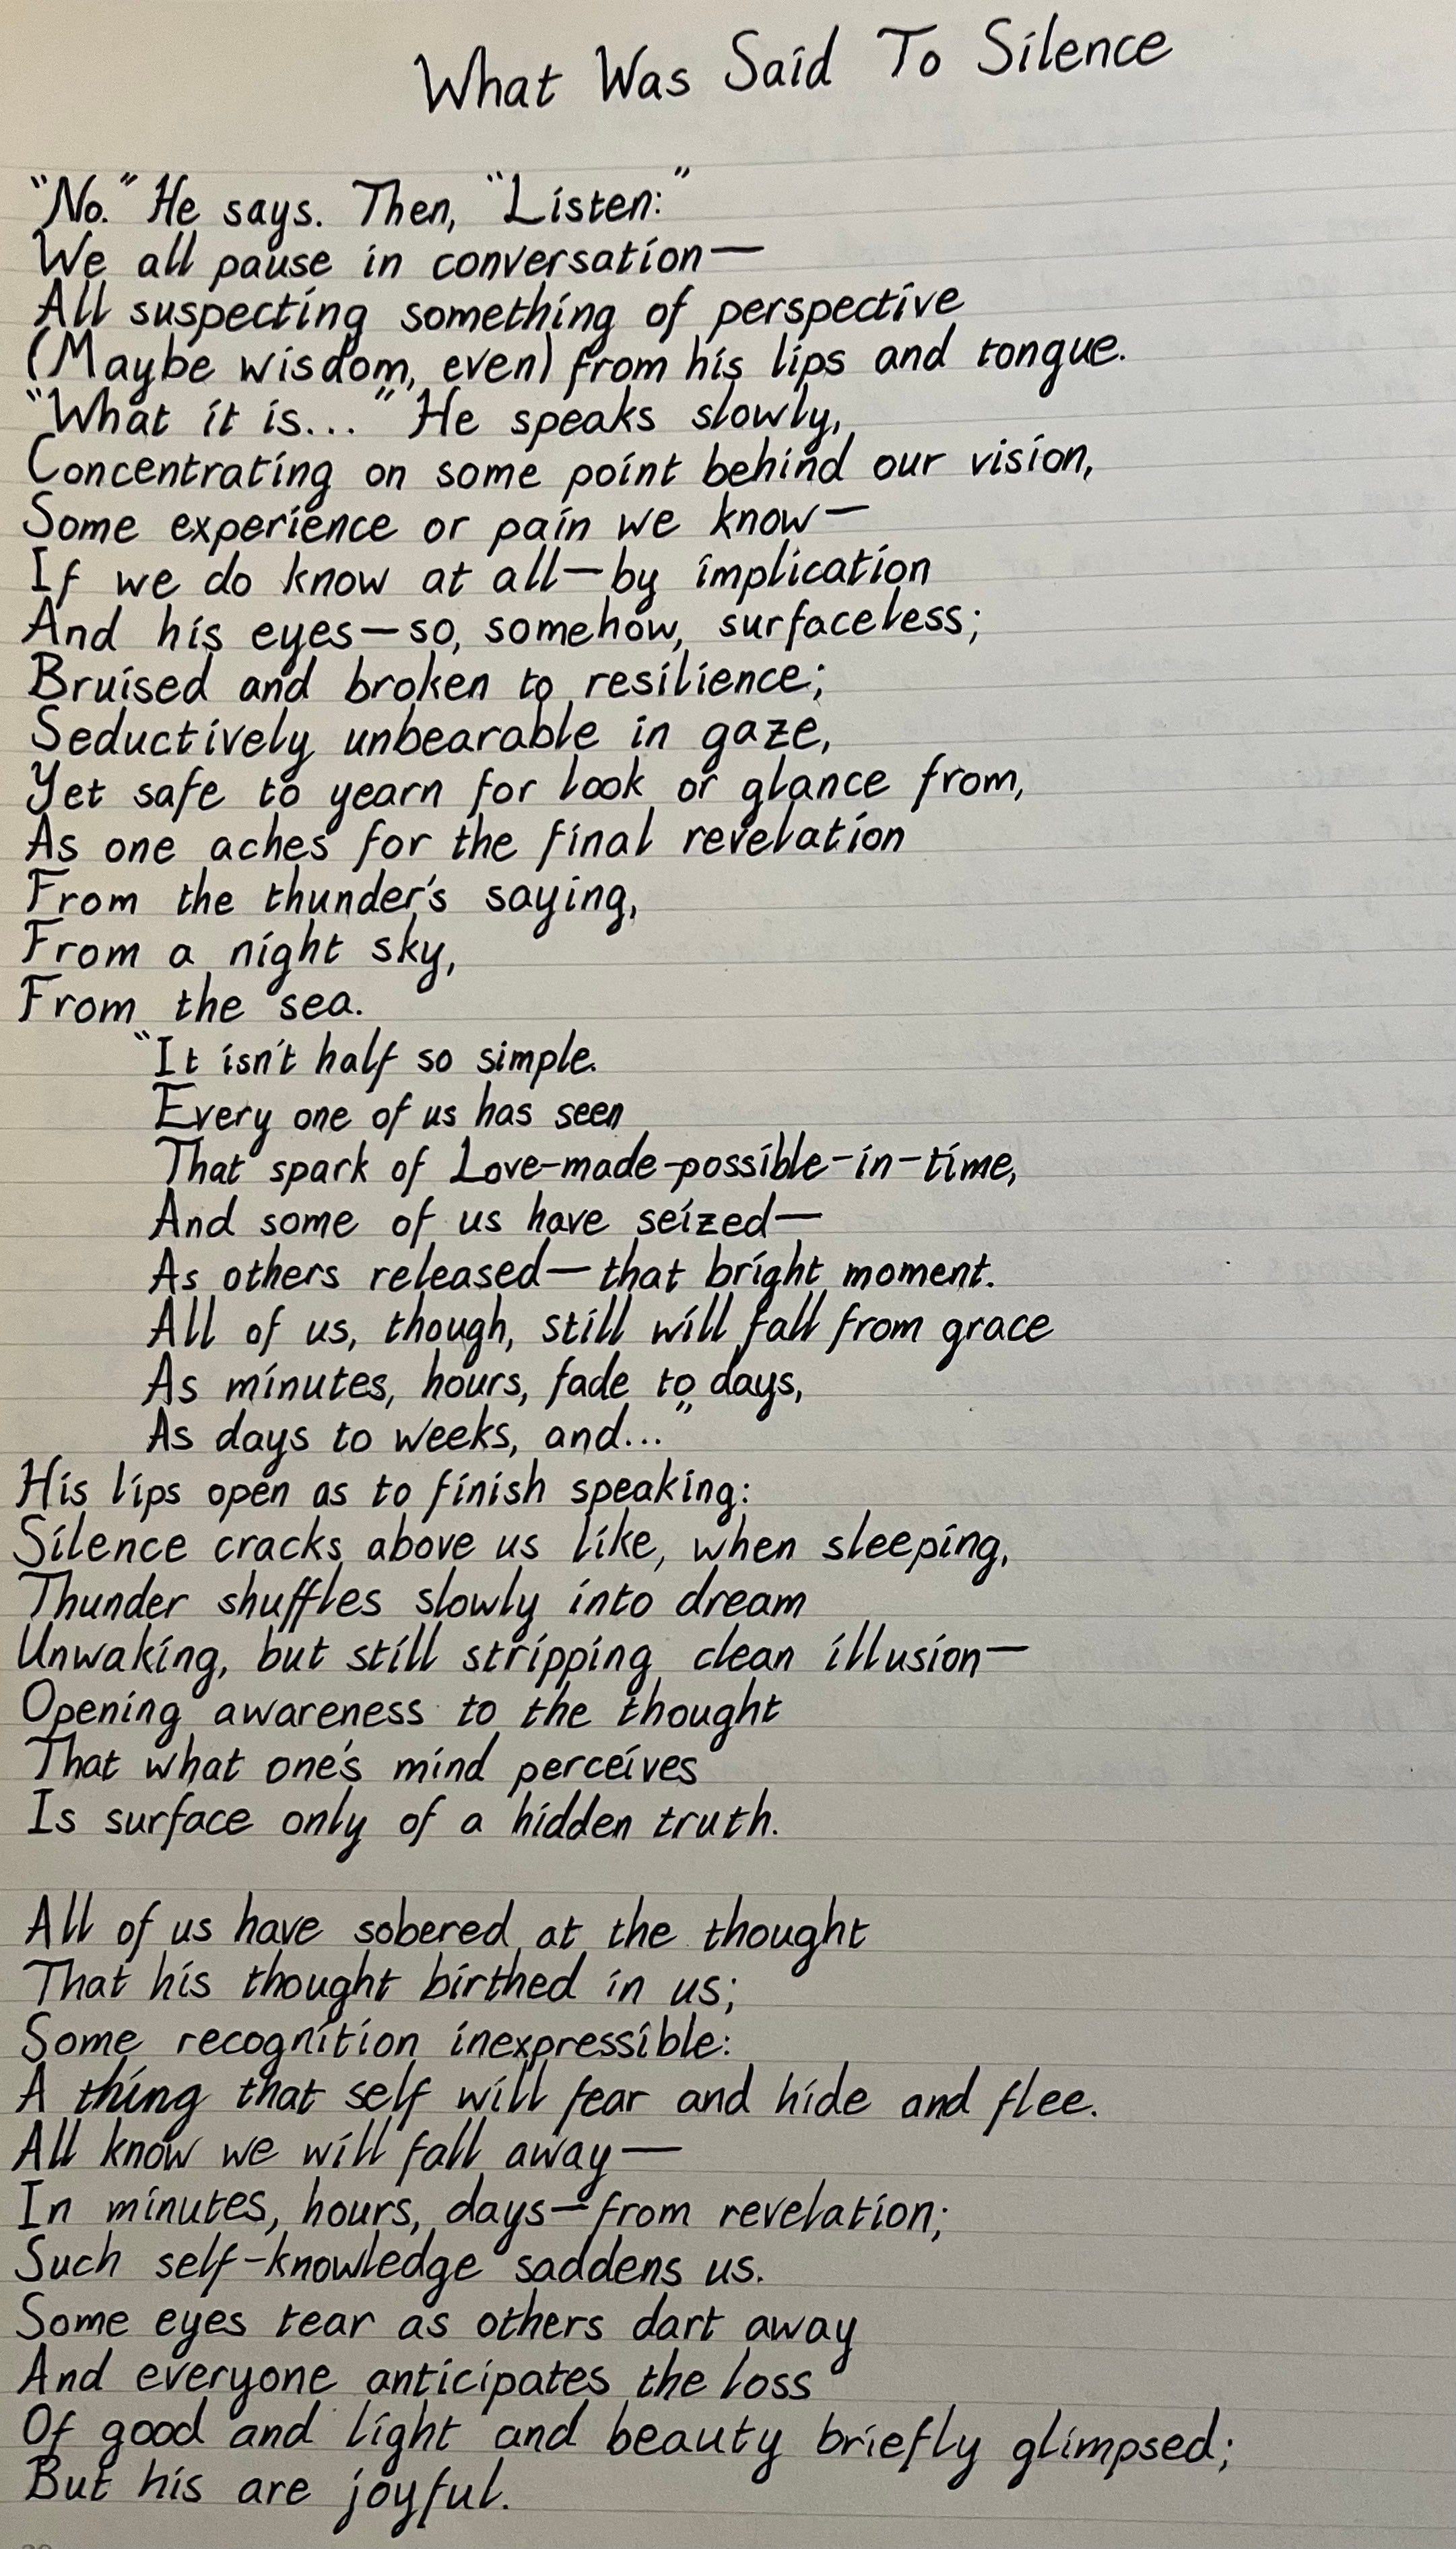 What Was Said To Silence
"No." He says. Then, "Listen:"
We all pause in conversation—
All suspecting something of perspective
(Maybe wisdom, even) from his lips and tongue.
"What it is..." He speaks slowly,
Concentrating on some point behind our vision,
Some experience or pain we know—
If we do know at all—by implication
And his eyes—so, somehow, surfaceless;
Bruised and broken to resilience;
Seductively unbearable in gaze,
Yet safe to yearn for look or glance from,
As one aches for the final revelation
From the thunder's saying,
From a night sky,
From the sea.
"It isn't half so simple.
Every one of us has seen
That spark of Love-made-possible-in-time,
And some of us have seized—
As others released—that bright moment.
All of us, though, still will fall from grace
As minutes, hours, fade to days,
As days to weeks, and..."
His lips open as to finish speaking:
Silence cracks above us like, when sleeping,
Thunder shuffles slowly into dream
Unwaking, but still stripping clean illusion—
Opening awareness to the thought
That what one's mind perceives
Is surface only of a hidden truth.
All of us have sobered at the thought
That his thought birthed in us;
Some recognition inexpressible:
A thing that self will fear and hide and flee.
All know we will fall away—
In minutes, hours, days—from revelation;
Such self-knowledge saddens us.
Some eyes tear as others dart away
And everyone anticipates the loss
Of good and light and beauty briefly glimpsed;
But his are joyful.